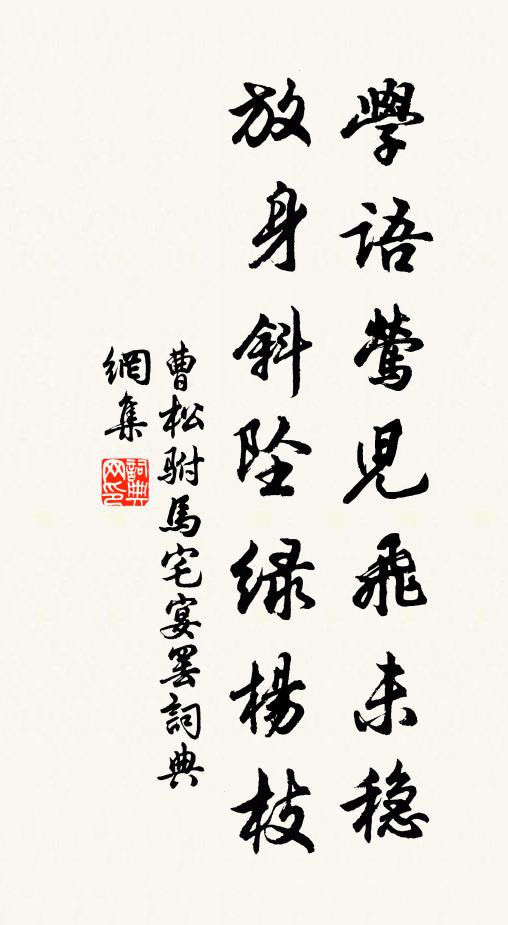 學語鶯兒飛未穩
放身斜墜綠楊枝
曹松駙馬宅宴罷詞典
網集
詞典
网印